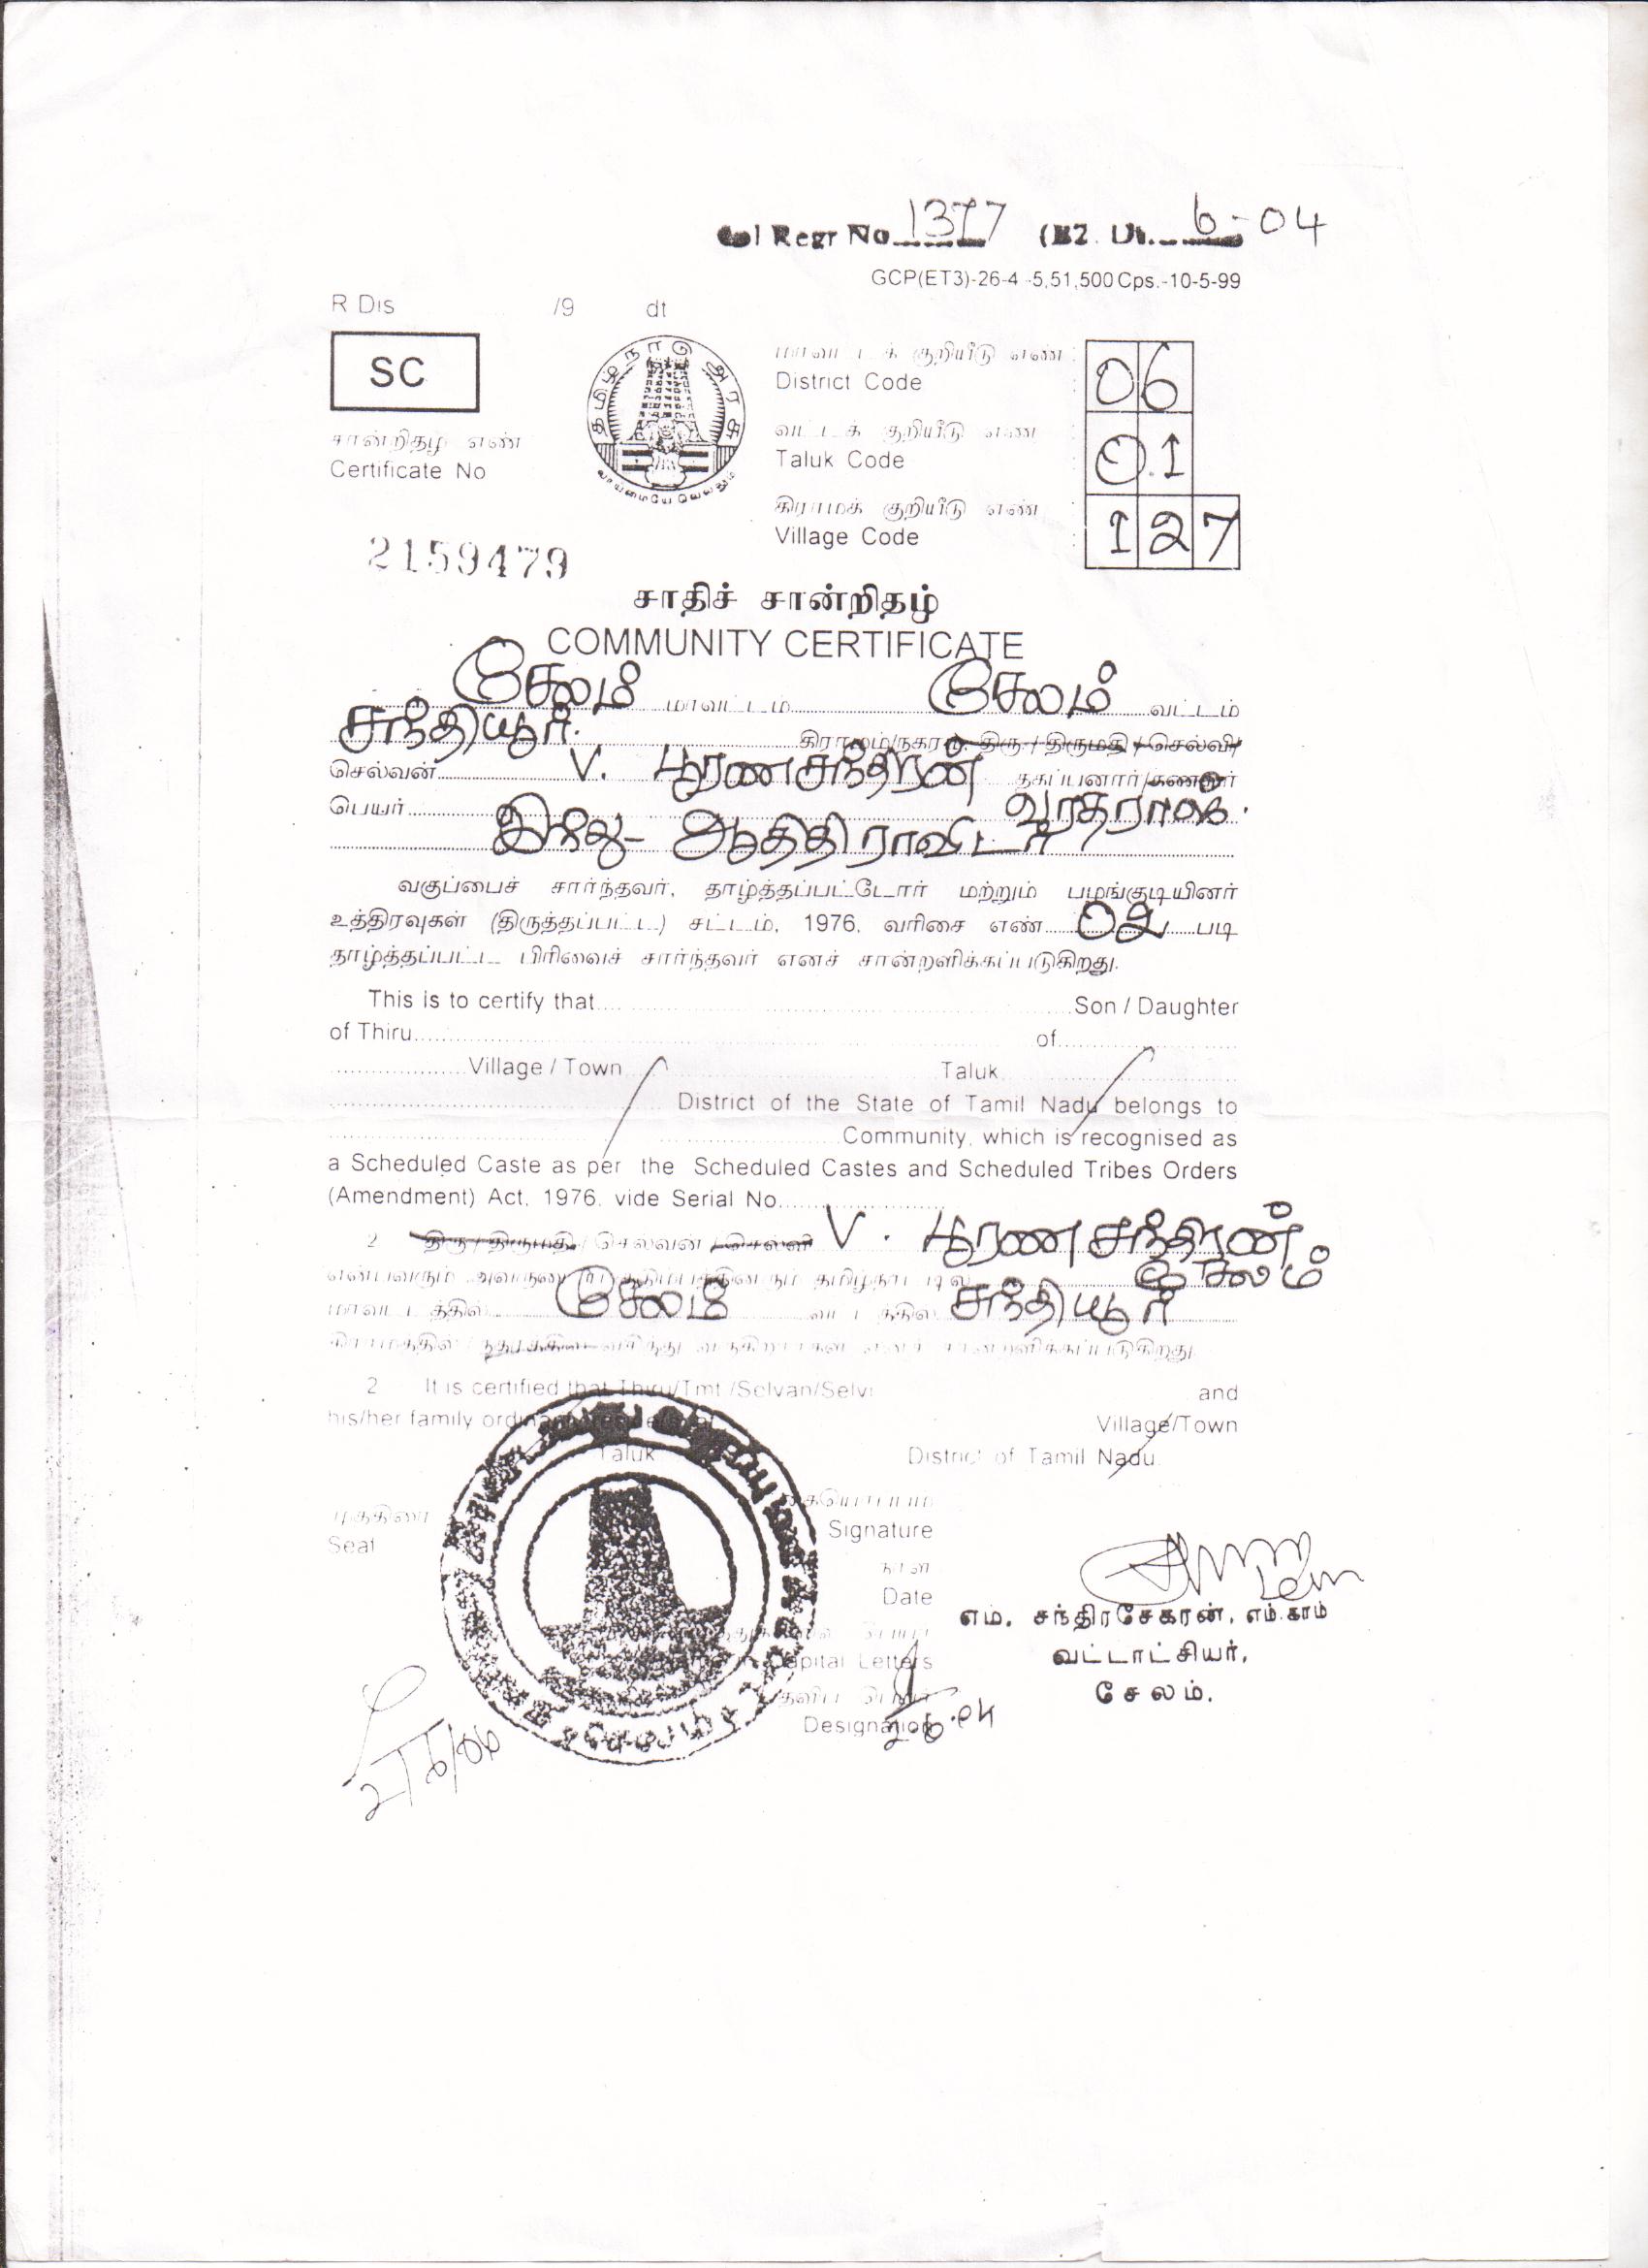 Regr No 1377 (B2. Dt. 6-04
GCP(ET3)-26-4 -5,51,500 Cps.-10-5-99
R Dis /9 dt
SC
தமிழ்நாடு அரசு
வாய்மையே வெல்லும்
மாவட்டக் குறியீடு எண் :
District Code
06
வட்டக் குறியீடு எண் :
Taluk Code
01
கிராமக் குறியீடு எண் :
Village Code
127
சான்றிதழ் எண்
Certificate No
2159479
சாதிச் சான்றிதழ்
COMMUNITY CERTIFICATE
சேலம் மாவட்டம் சேலம் வட்டம்
சந்தியூர். கிராமம்/நகரம் திரு / திருமதி / செல்வி/
செல்வன் V. பூரணசந்திரன் தகப்பனார்/கணவர்
பெயர் வரதராஜ்.
இந்து- ஆதிதிராவிடர்
வகுப்பைச் சார்ந்தவர், தாழ்த்தப்பட்டோர் மற்றும் பழங்குடியினர்
உத்திரவுகள் (திருத்தப்பட்ட) சட்டம், 1976, வரிசை எண் 02 படி
தாழ்த்தப்பட்ட பிரிவைச் சார்ந்தவர் எனச் சான்றளிக்கப்படுகிறது.
This is to certify that Son / Daughter
of Thiru of
Village / Town Taluk
District of the State of Tamil Nadu belongs to
Community, which is recognised as
a Scheduled Caste as per the Scheduled Castes and Scheduled Tribes Orders
(Amendment) Act, 1976, vide Serial No.
2 திரு / திருமதி / செல்வன் / செல்வி V. பூரணசந்திரன்
என்பவரும் அவருடைய குடும்பத்தினரும் தமிழ்நாட்டில் சேலம்
மாவட்டத்தில் சேலம் வட்டத்தில் சந்தியூர்
கிராமத்தில் வசித்து வருகிறார்கள் எனச் சான்றளிக்கப்படுகிறது
2 It is certified that Thiru/Tmt /Selvan/Selvi and
his/her family Village/Town
Taluk District of Tamil Nadu
முத்திரை
Seal
கையொப்பம்
Signature
நாள்
Date
எம். சந்திரசேகரன், எம்.காம்
வட்டாட்சியர்,
Capital Letters
சேலம்.
Designation
2.6.04
2/6/04